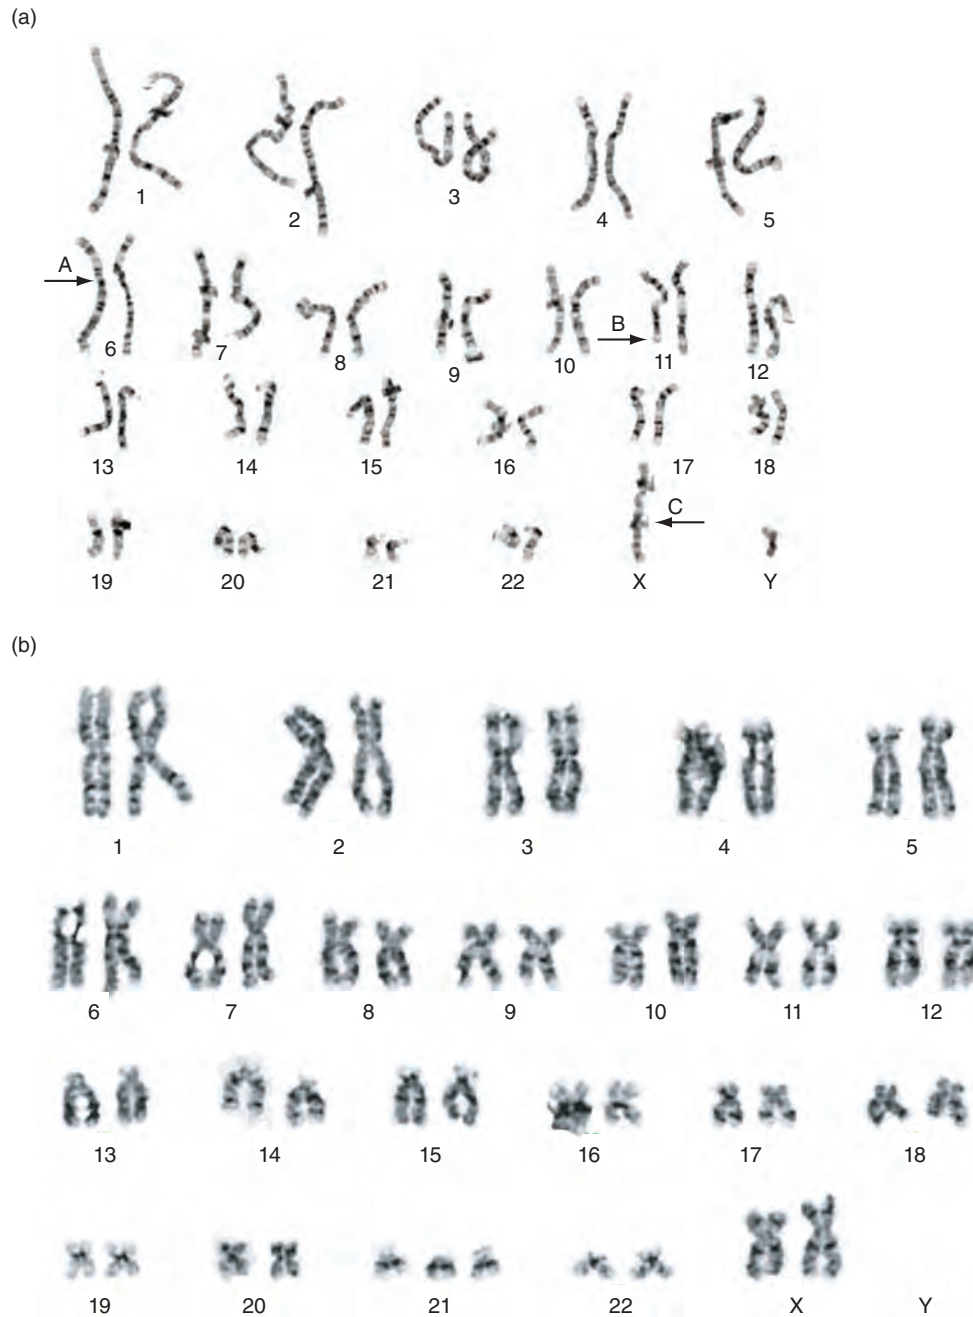 (a)
1 2 3 4 5
A B
6 7 8 9 10 11 12
13 14 15 16 17 18
C
19 20 21 22 X Y
(b)
1 2 3 4 5
6 7 8 9 10 11 12
13 14 15 16 17 18
19 20 21 22 X Y